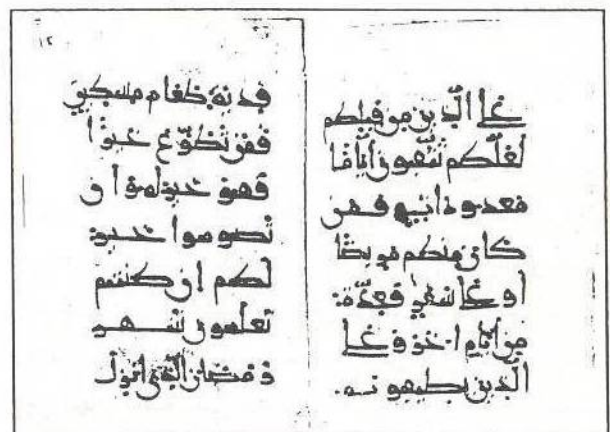 ١٢
عَلَى الَّذِينَ مِن قَبْلِكُمْ
لَعَلَّكُمْ تَتَّقُونَ أَيَّامًا
مَعْدُودَاتٍ فَمَن
كَانَ مِنكُم مَرِيضًا
أَوْ عَلَى سَفَرٍ فَعِدَّةٌ
مِنْ أَيَّامٍ أُخَرَ وَعَلَى
الَّذِينَ يُطِيقُونَهُ
فِدْيَةٌ طَعَامُ مِسْكِينٍ
فَمَن تَطَوَّعَ خَيْرًا
فَهُوَ خَيْرٌ لَهُ وَأَن
تَصُومُوا خَيْرٌ
لَكُمْ إِن كُنتُمْ
تَعْلَمُونَ شَهْرُ
رَمَضَانَ الَّذِي أُنزِلَ